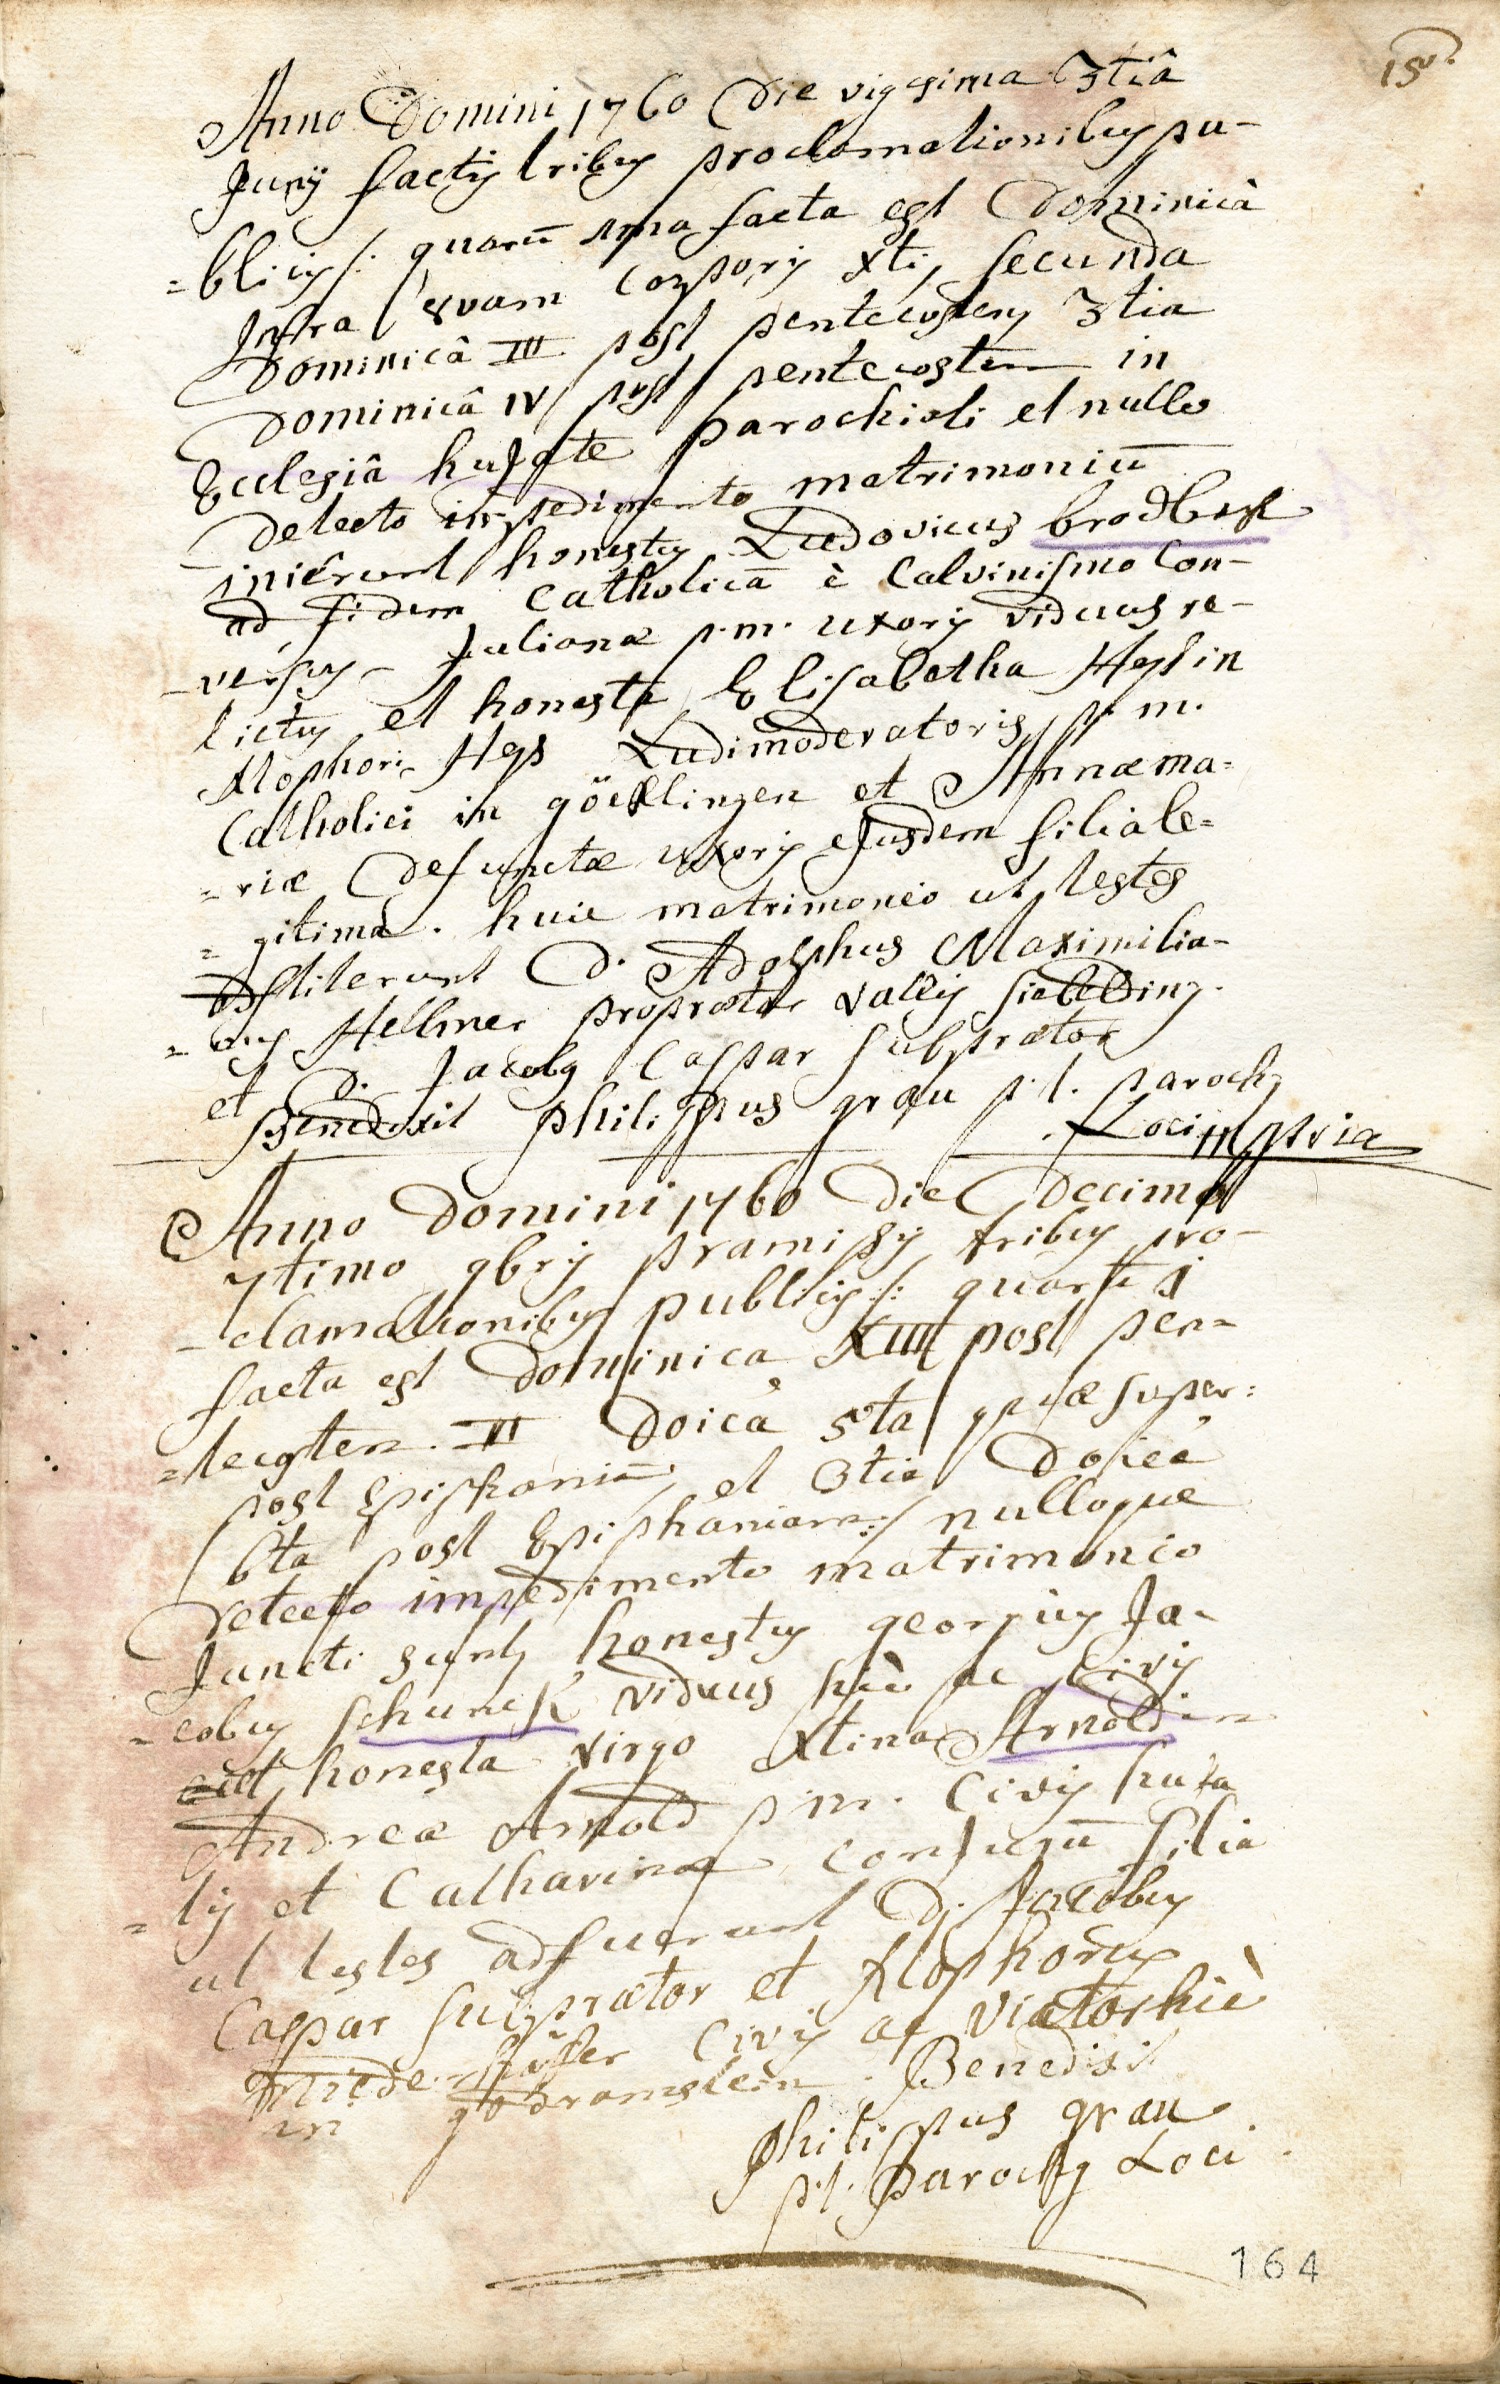 15
Anno Domini 1760 Die vigesima 3tiâ
Junÿ factis tribus proclamationibus pu-
=blicis /: quarū 1ma facta est Dominicâ
Infra 8vam Corporis Xti, secunda
Dominicâ III post pentecosten, 3tia
Dominicâ IV post pentecosten in
Ecclesiâ hujate parochiali et nullo
detecto impedimento matrimoniū
inierunt honestus Ludovicus brodbek
ad fidem Catholicā è Calvinismo Con-
-versus Julianæ p. m. uxoris viduus re-
lictus et honesta Elisabetha Heÿsin
Xtophori Heÿs Ludimoderatoris p. m.
Catholici in göcklingen et Annæ ma=
=riæ Defunctæ uxoris ejusdem filia le=
=gitima. huic matrimonio ut testes
adstiterunt D. Adolphus Maximilia-
=nus Hellmer proprætor vallis siebelding.
et D. Jacobus Caspar subprætor
Benedixit philippus grau p. t. parochus
Loci mppria
Anno Domini 1760 Die Decimo
7timo 9bris præmissis tribus pro-
-clamationibus publicis /: quarū 1
facta est Dominica XIII post pen=
=tecosten. II Doicâ 5ta quæ super=
post Epiphaniā, et 3tia Doicâ
6ta post Epiphaniam :/ nulloque
detecto impedimento matrimonio
Juncti sunt honestus georgius Ja-
=cobus schunck viduus hìc ac Civis
et honesta virgo Xtina Arnoldin
Andreæ Arnold p. m. Civis huja
=lis et Catharinæ Conjugū filia
ut testes adfuerunt D. Jacobus
Caspar subprætor et Xtophorus
Civis ac Viëtor hìc
in godramstein. Benedixit
philippus grau
p. t. parochus Loci
164